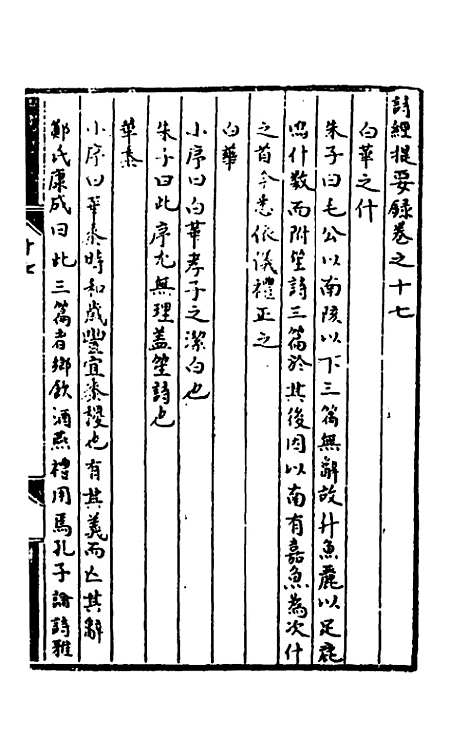 詩經提要錄卷之十七
白華之什
朱子曰毛公以南陔以下三篇無辭故升魚麗以足鹿
鳴什數而附笙詩三篇於其後因以南有嘉魚為次什
之首今悉依儀禮正之
白華
小序曰白華孝子之潔白也
朱子曰此序尤無理蓋笙詩也
華黍
小序曰華黍時和歲豐宜黍稷也有其義而亡其辭
鄭氏康成曰此三篇者鄉飲酒燕禮用焉孔子論詩雅
十七